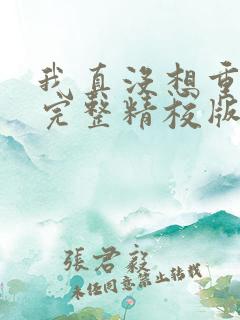 我真没想重
完整精校版
張君毅
未任同意禁止转载